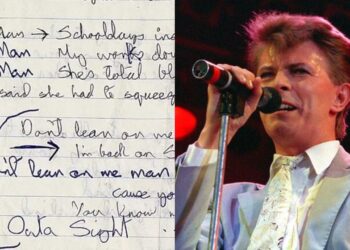 Man → Schooldays in
Man My work's dow
Man She's total bl
said she had to squeeze
Don't lean on me
→ I'm back on S
n't lean on me man
cause yo
You know
Outa Sight